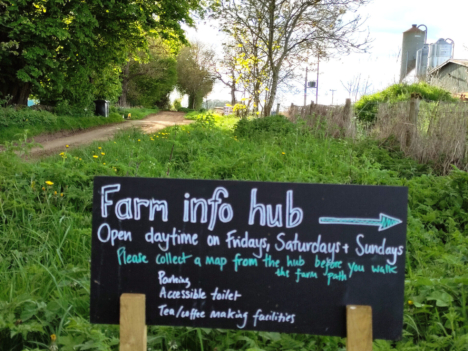 Farm info hub
Open daytime on Fridays, Saturdays + Sundays
Please collect a map from the hub before you walk
the farm path
Parking
Accessible toilet
Tea/coffee making facilities